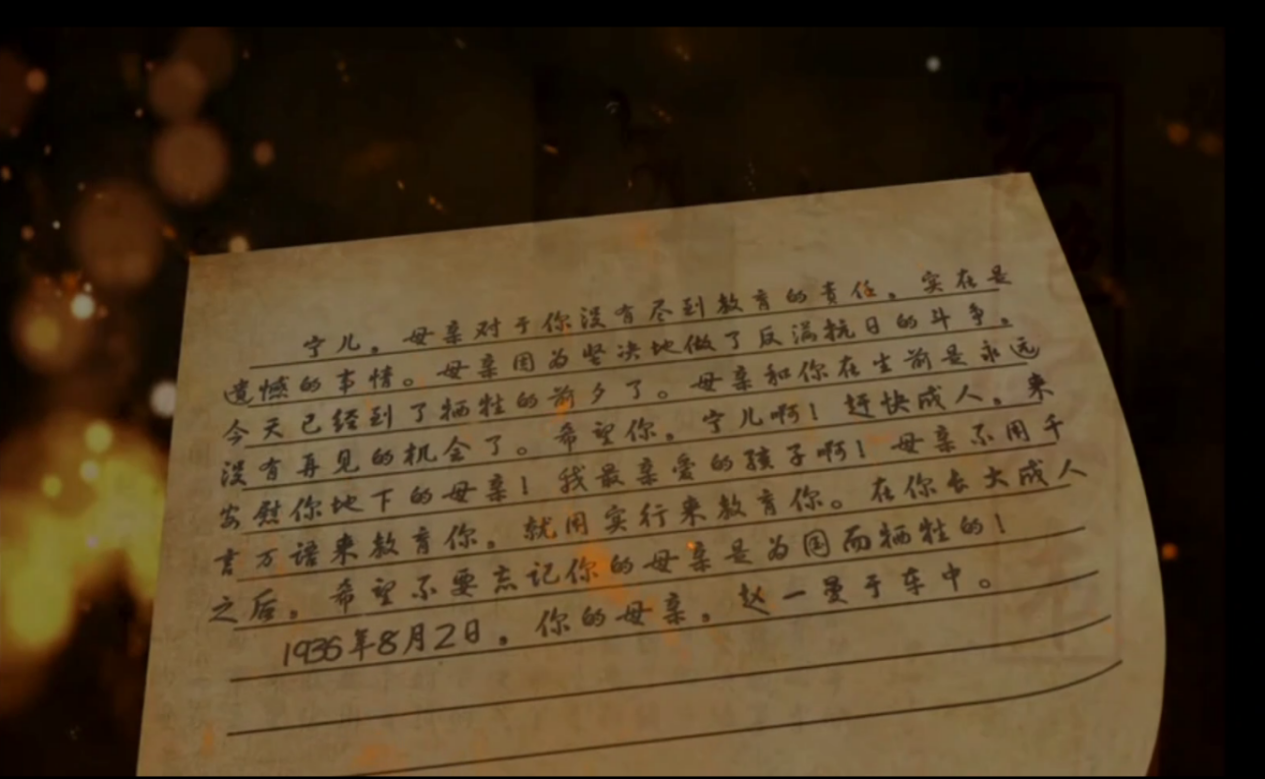 宁儿。母亲对于你没有尽到教育的责任。实在是
遗憾的事情。母亲因为坚决地做了反满抗日的斗争。
今天已经到了牺牲的前夕了。母亲和你在生前是永远
没有再见的机会了。希望你。宁儿啊!赶快成人。来
安慰你地下的母亲!我最亲爱的孩子啊!母亲不用千
言万语来教育你。就用实行来教育你。在你长大成人
之后。希望不要忘记你的母亲是为国而牺牲的!
1936年8月2日。你的母亲。赵一曼于车中。